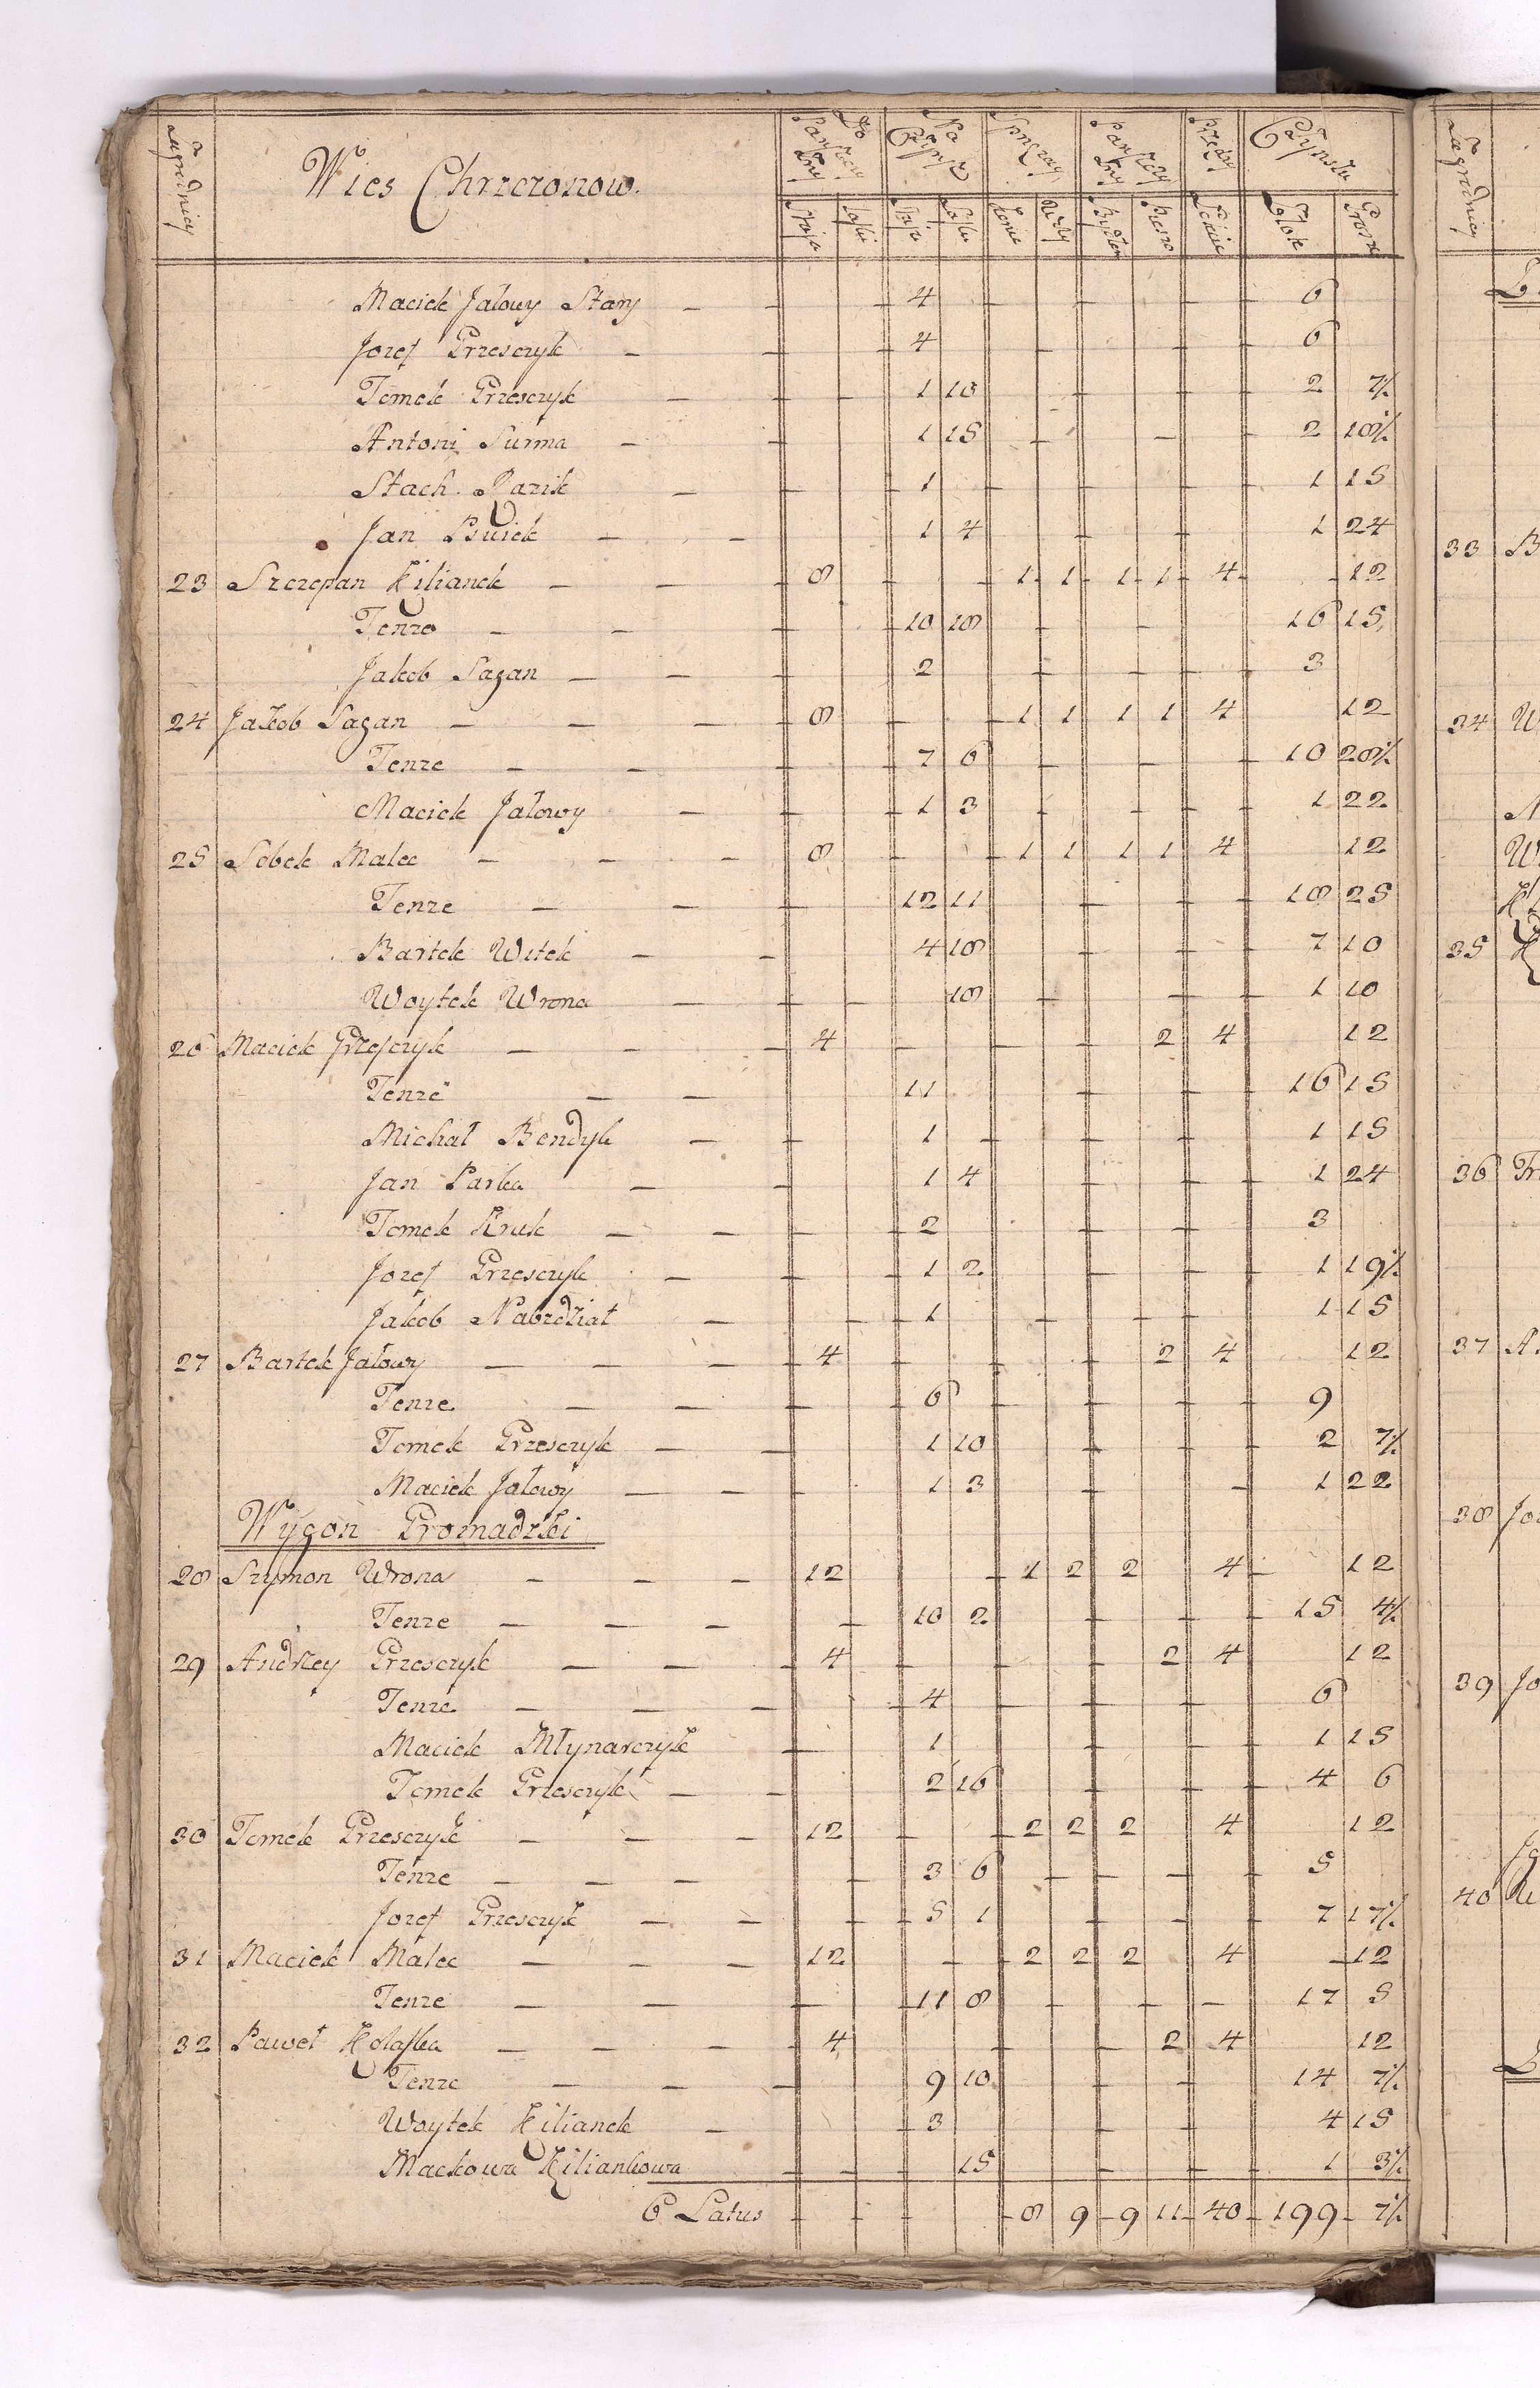 Zagrodnicy
Wies Chrzczonow.
Do Panszczyzny
Na Czynsz
Sprzezay
Panszczyzny
Przędzy
Czynszu
Staja Laski Staje Laski Konie Woły Bydłem Pieszo Łokcie Złote Grosze
Maciek Jałowy Stary 4 6
Jozef Grzesczyk 4 6
Tomek Grzesczyk 1 10 2 7½
Antoni Surma 1 15 2 18½
Stach Pazik 1 1 15
Jan 1 4 1 24
23 Szczepan Kilianek 8 1 1 1 1 4 12
Tenze 10 18 16 15
Jakob Sagan 2 3
24 Jakob Sagan 8 1 1 1 1 4 12
Tenze 7 6 10 28½
Maciek Jałowy 1 3 1 22
25 Sobek Malec 8 1 1 1 1 4 12
Tenze 12 11 18 25
Bartek Witek 4 18 7 10
Woytek Wrona 18 1 10
26 Maciek Grzesczyk 4 2 4 12
Tenze 11 16 15
Michał Bendyk 1 1 15
Jan Parka 1 4 1 24
Tomek Kruk 2 3
Jozef Grzesczyk 1 2 1 19½
Jakob Nabrdziat 1 1 15
27 Bartek Jałowy 4 2 4 12
Tenze 6 9
Tomek Grzesczyk 1 10 2 7½
Maciek Jałowy 1 3 1 22
Wygon Gromadzki
28 Szymon Wrona 12 1 2 2 4 12
Tenze 10 2 15 4½
29 Andrzey Grzesczyk 4 2 4 12
Tenze 4 6
Maciek Młynarczyk 1 1 15
Tomek Grzesczyk 2 16 4 6
30 Tomek Grzesczyk 12 2 2 2 4 12
Tenze 3 6 5
Jozef Grzesczyk 5 1 7 17½
31 Maciek Malec 12 2 2 2 4 12
Tenze 11 8 17 5
32 Paweł Kolaska 4 2 4 12
Tenze 9 10 14 7½
Woytek Kilianek 3 4 15
Mackowa Kiliankowa 15 1 3½
6 Latus 8 9 9 11 40 199 7½
Zagrodnicy
33 B
34 W
35
36 Fr
37 A
38 Jo
39 Jo
40